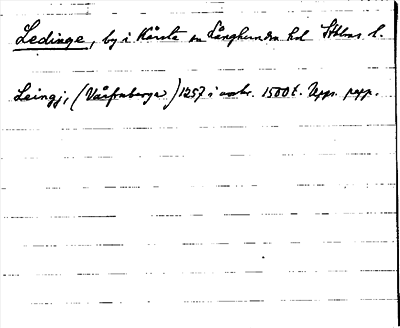 Ledinge, by i Kårsta sn Långhundra hd Sthlms l.
Leingj, (Vårfruberga) 1257 i avskr. 1500t. Upps. papp.